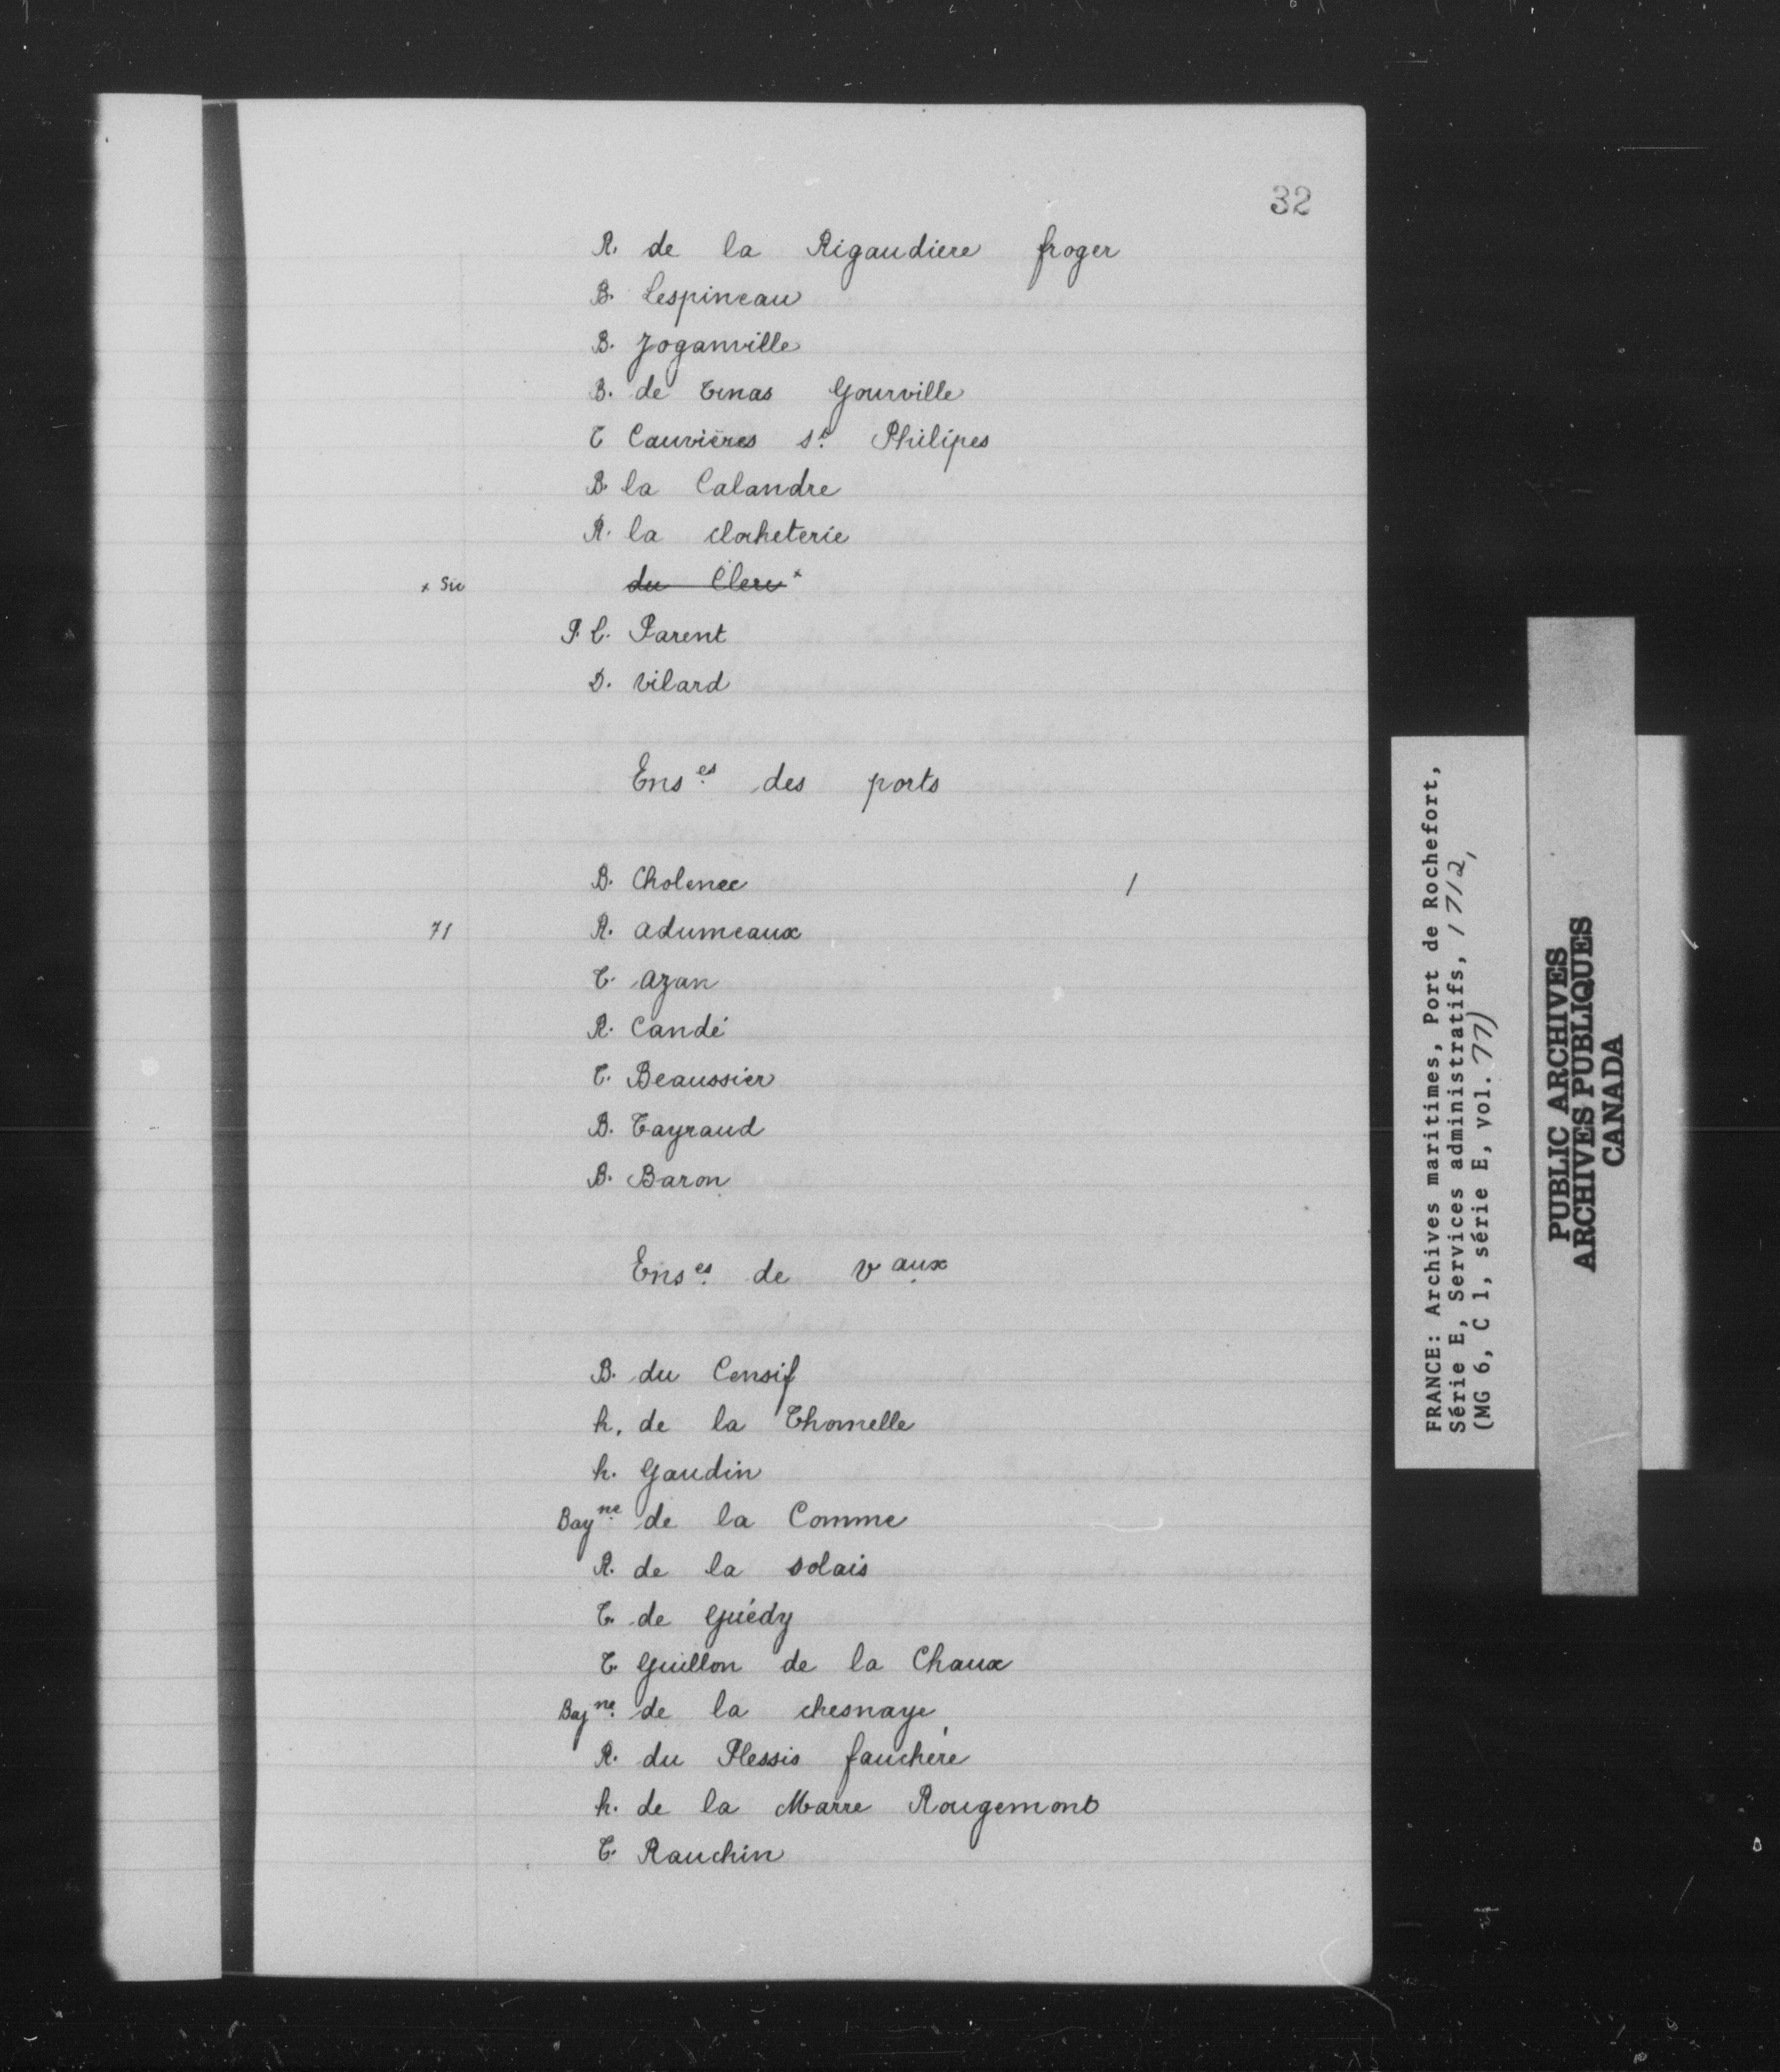 32
R. de la Rigaudiere froger
B. Lespineau
B. Joganville
B. de Cunas Gourville
T Cauvières st. Philipes
B. la Calandre
R. la clocheterie
x Sic du Clerc x
P. L. Parent
D. Vilard
Ens.es des ports
B. Cholenec 1
71 R. adumeaux
T. azan
R. Candé
T. Beaussier
B. Tayraud
B. Baron
Ens.es de v.aux
B. du Censif
h. de la Thomelle
h. Gaudin
Bay.ne de la Comme
R. de la solais
T. de Guédy
T. Guillon de la Chaux
Bay.ne de la chesnaye
R. du Plessis fauchère
h. de la Marre Rougemont
T. Rauchin
FRANCE: Archives maritimes, Port de Rochefort,
Série E, Services administratifs, 1712,
(MG 6, C 1, série E, vol. 77)
PUBLIC ARCHIVES
ARCHIVES PUBLIQUES
CANADA